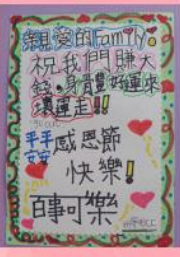 親愛的Family:
祝我們賺大
錢,身體好,好運來
壞運走!!
平平
安安
感恩節
快樂!
百事可樂